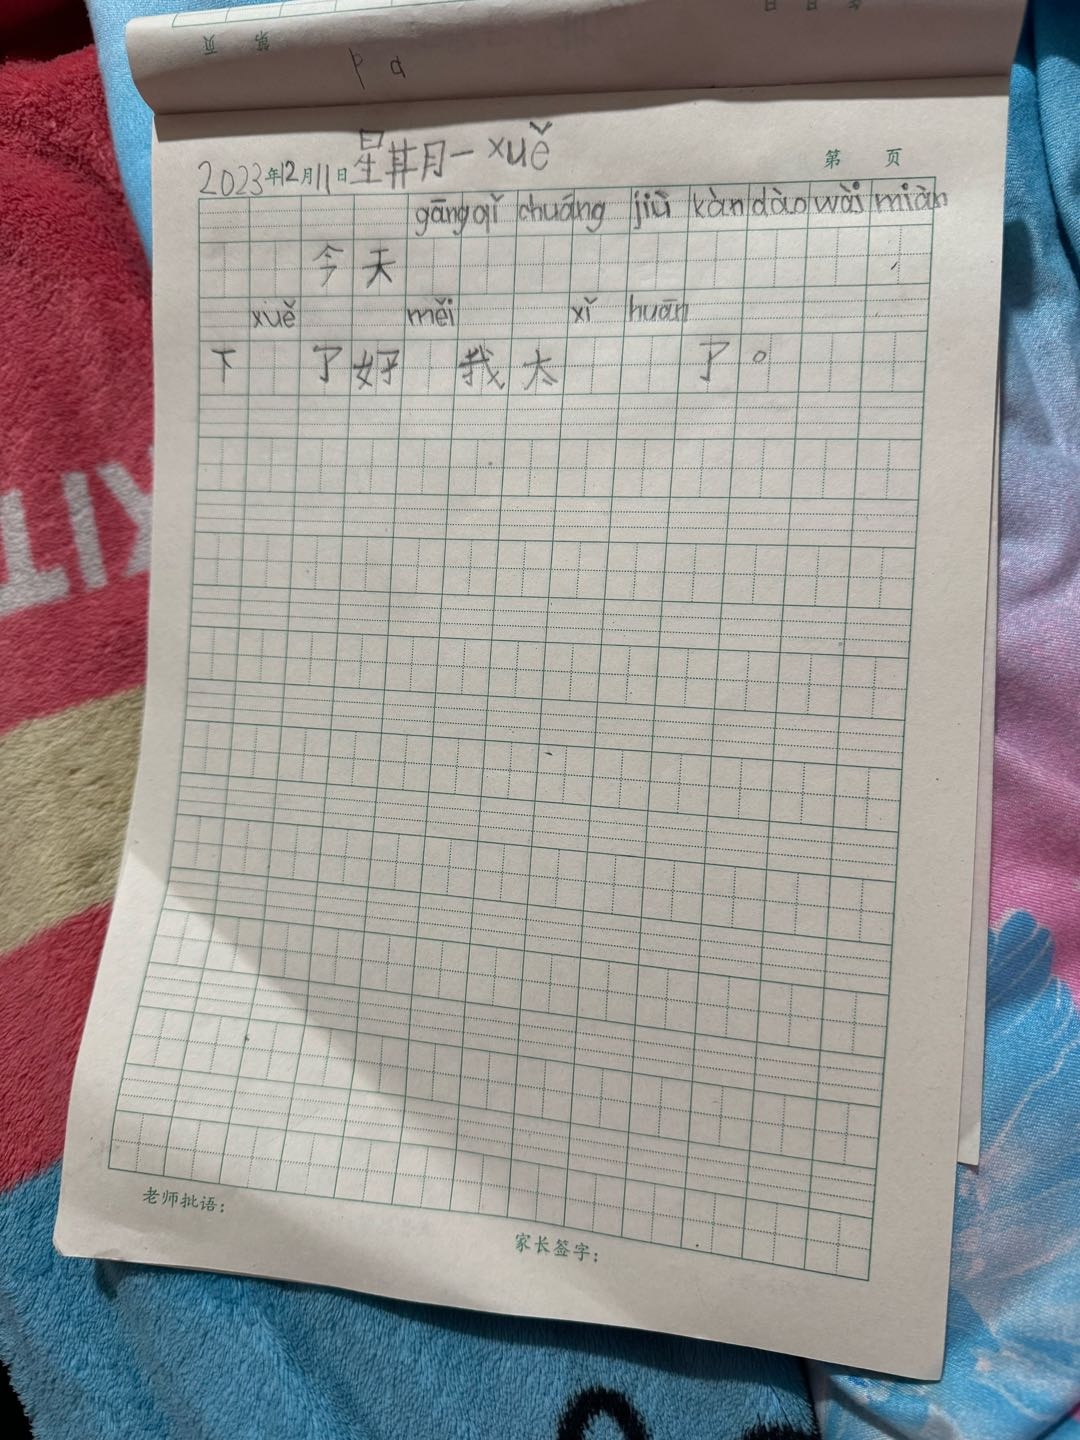 页 第
p a
2023年12月11日 星期一 xuě 第 页
gāng qǐ chuáng jiù kàn dào wài miàn
今天
xuě měi xǐ huān
下 了好 我太 了。
老师批语：
家长签字：